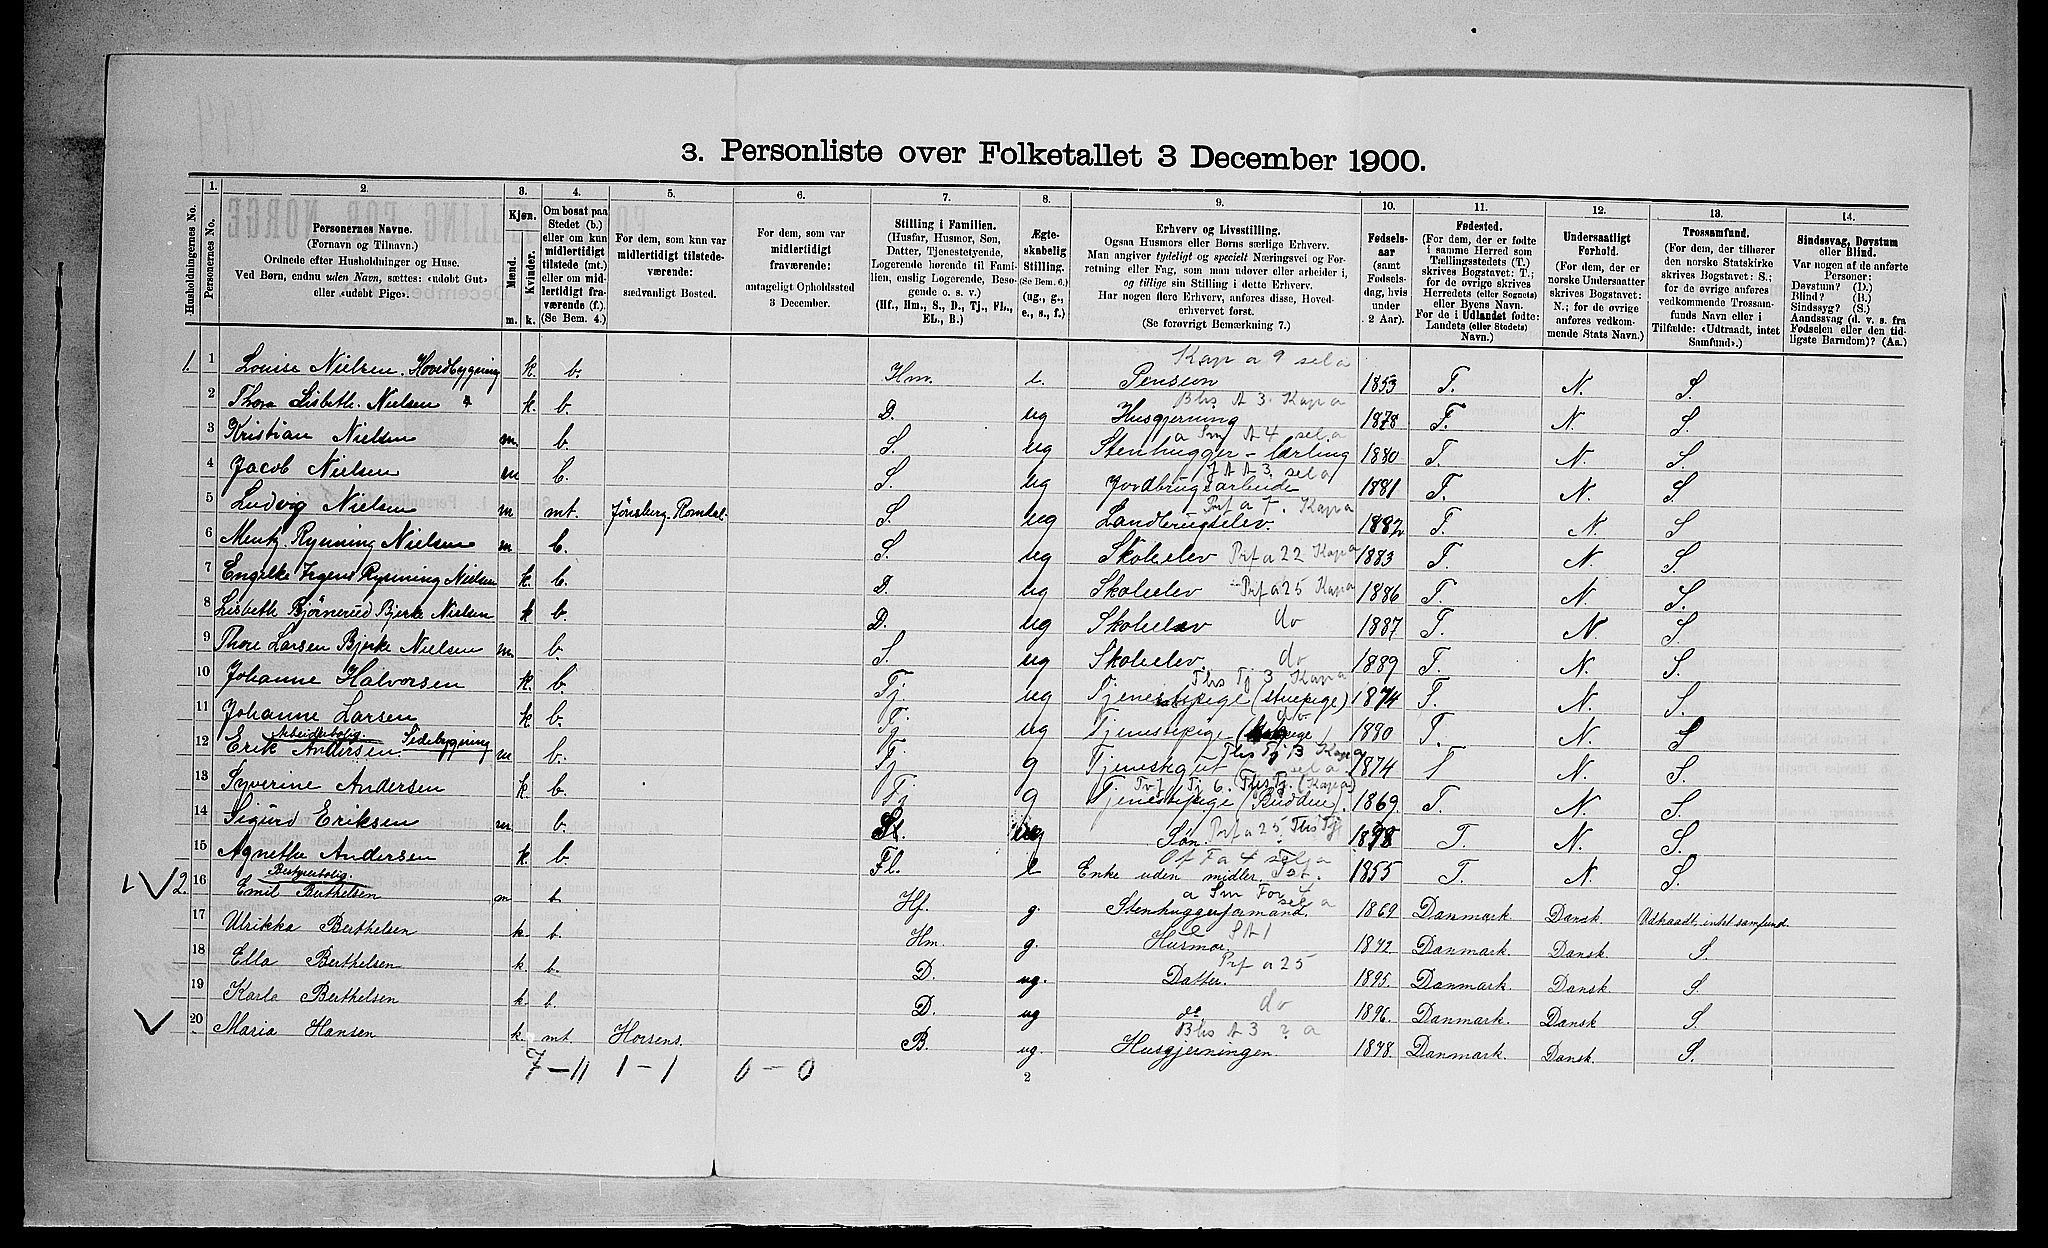 3. Personliste over Folketallet 3 December 1900.
Husholdningernes No.
1. Personernes No.
2. Personernes Navne.
(Fornavn og Tilnavn.)
Ordnede efter Husholdninger og Huse.
Ved Børn, endnu uden Navn, sættes: «udøbt Gut»
eller «udøbt Pige».
3. Kjøn.
Mænd. m.
Kvinder. k.
4. Om bosat paa
Stedet (b.)
eller om kun
midlertidigt
tilstede (mt.)
eller om mid-
lertidigt fra-
værende (f.)
(Se Bem. 4.)
5. For dem, som kun var
midlertidigt tilstede-
værende:
sædvanligt Bosted.
6. For dem, som var
midlertidigt
fraværende:
antageligt Opholdssted
3 December.
7. Stilling i Familien.
(Husfar, Husmor, Søn,
Datter, Tjenestetyende,
Logerende hørende til Fami-
lien, enslig Logerende, Besø-
gende o. s. v.)
(Hf., Hm., S., D., Tj., FL.,
EL., B.)
8. Ægte-
skabelig
Stilling.
(Se Bem. 6.)
(ug., g.,
e., s., f.)
9. Erhverv og Livsstilling.
Ogsaa Husmors eller Børns særlige Erhverv.
Man angiver tydeligt og specielt Næringsvei og For-
retning eller Fag, som man udøver eller arbeider i,
og tillige sin Stilling i dette Erhverv.
Har nogen flere Erhverv, anføres disse, Hoved-
erhvervet først.
(Se forøvrigt Bemærkning 7.)
10. Fødsels-
aar
(samt
Fødsels-
dag, hvis
under
2 Aar).
11. Fødested.
(For dem, der er fødte
i samme Herred som
Tællingsstedets (T.)
skrives Bogstavet: T.;
for de øvrige skrives
Herredets (eller Sognets)
eller Byens Navn.
For de i Udlandet fødte:
Landets (eller Stedets)
Navn.)
12. Undersaatligt
Forhold.
(For dem, der er
norske Undersaatter
skrives Bogstavet:
N.; for de øvrige
anføres vedkom-
mende Stats Navn.)
13. Trossamfund.
(For dem, der tilhører
den norske Statskirke
skrives Bogstavet: S.;
for de øvrige anføres
vedkommende Trossam-
funds Navn eller i
Tilfælde: «Udtraadt, intet
Samfund».)
14. Sindssvag, Døvstum
eller Blind.
Var nogen af de anførte
Personer:
Døvstum? (D.)
Blind? (B.)
Sindssyg? (S.)
Aandssvag (d. v. s. fra
Fødselen eller den tid-
ligste Barndom)? (Aa.)
Kap a 9 sel a
1. 1 Louise Nielsen. Hovedbygning k. b. Hm. e. Pension 1853 T. N. S.
Bhs A 3. Kap a
2 Thora Lisbeth. Nielsen k. b. D. ug Husgjerning 1878 T. N. S.
a Sm A 4 sel a
3 Kristian Nielsen m. b. S. ug Stenhugger-lærling 1880 T. N. S.
J A A 3. sel a
4 Jacob Nielsen m b. S. ug Jordbrugsarbeide 1881 T. N. S.
Prf a 7. Kap a
5 Ludvig Nielsen m mt. Jønsberg. Romdal. S. ug Landbrugselev. 1882 T. N. S
6 Mentz. Rynning Nielsen m b. S. ug Skoleelev Prf a 22 Kap a 1883 T. N. S.
7 Engelke Irgens Rynning Nielsen k. b. D. ug Skoleelev Prf a 25 Kap a 1886 T. N. S.
8 Lisbeth Bjørnerud Bjerke Nielsen k b. D. ug Skoleelev do 1887 T. N. S.
9 Thore Larsen Bjerke Nielsen m. b. S. ug Skoleelev. do 1889 T. N. S.
Ths Tj 3 Kap a
10 Johanne Halvorsen k. b. Tj ug Tjenestepige (stuepige) 1874 T. N. S.
do
11 Johanne Larsen k b. Tj ug Tjenestepige 1880 T. N. S
Arbeiderbolig Sidebygning
Ths Tj 13 Kap a
12 Erik Andersen. m b. Tj g Tjenestegut sel a 1874 T N. S.
Tj 6. Ths Tj. (Kap a)
13 Syverine Andersen k. b. Tj g Tjenestepige (Budden). 1869 T. N. S.
14 Sigurd Eriksen m b. ug Søn. Prf a 25. Ths Tj 1898 T. N. S.
Of Fa 4
15 Agnethe Andersen k. b Fl. e Enke uden midler. 1855 T. N. S.
Bestyrerbolig.
a Sm For 4 sel a
2. 16 Emil Berthelsen m b Hf. g. Stenhuggerformand. 1869 Danmark. Dansk. Udtraadt, intet samfund.
e S A 1
17 Ulrikka Berthelsen k. b. Hm. g. Husmor. 1872. Danmark. Dansk. S.
Prf a 25
18 Ella Berthelsen k b. D. ug. Datter. 1895. Danmark. Dansk. S.
do
19 Karla Berthelsen k b. D. ug do 1896. Danmark. Dansk S.
Bhs A 3 ? a
20 Maria Hansen k. mt. Horsens. B. ug. Husgjerningen. 1878. Danmark. Dansk. S.
7 – 11 1 – 1 0 – 0
2